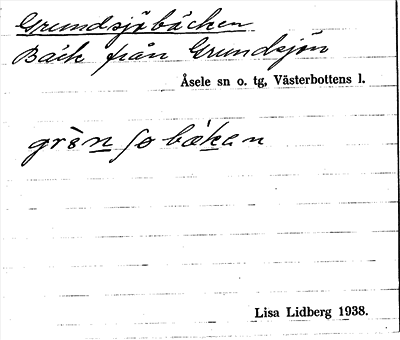 Grundsjöbäcken
Bäck från Grundsjön
Åsele sn o. tg, Västerbottens l.
Lisa Lidberg 1938.